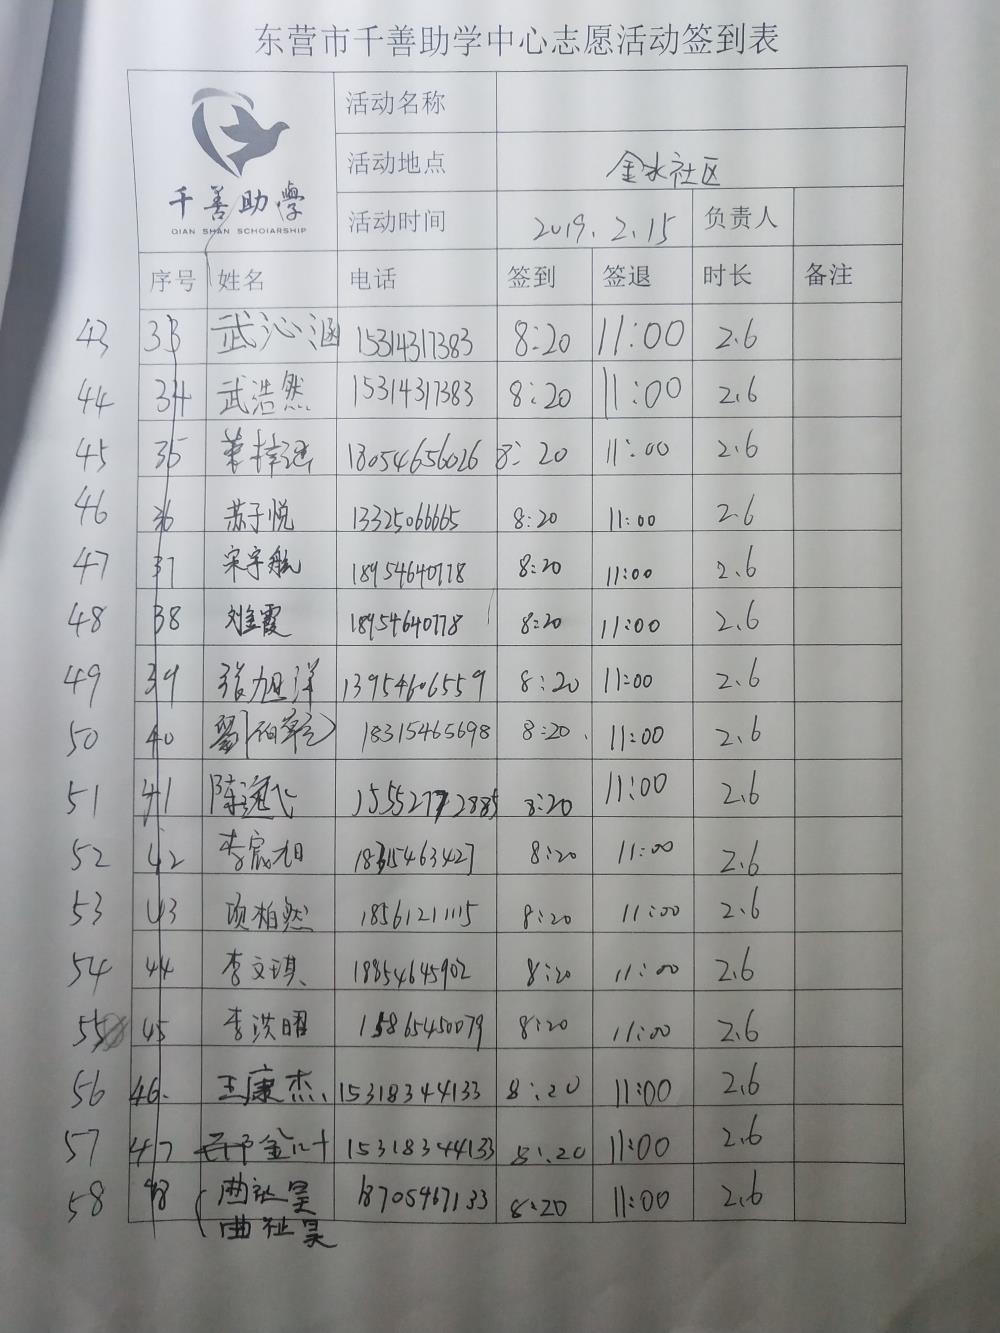 东营市千善助学中心志愿活动签到表
千善助學
QIAN SHAN SCHOLARSHIP
活动名称
活动地点 金水社区
活动时间 2019.2.15 负责人
序号 姓名 电话 签到 签退 时长 备注
43 33 武沁涵 15314317383 8:20 11:00 2.6
44 34 武浩然 15314317383 8:20 11:00 2.6
45 35 18054656026 8:20 11:00 2.6
46 36 苏子悦 13325066665 8:20 11:00 2.6
47 37 宋宇航 18954640778 8:20 11:00 2.6
48 38 刘金霞 18954640778 8:20 11:00 2.6
49 39 张旭洋 13954606559 8:20 11:00 2.6
50 40 18315465698 8:20 11:00 2.6
51 41 陈逸飞 8:20 11:00 2.6
52 42 李宸旭 18315463427 8:20 11:00 2.6
53 43 项柏然 18561211115 8:20 11:00 2.6
54 44 李文琪 18854645902 8:20 11:00 2.6
55 45 李洪曜 15865450079 8:20 11:00 2.6
56 46. 王康杰 15318344133 8:20 11:00 2.6
57 47 15318344133 8:20 11:00 2.6
58 48 曲祉昊 18705467133 8:20 11:00 2.6
曲祉昊